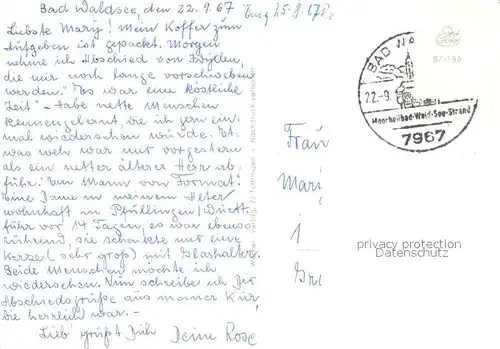 Bad Waldsee, den 22.9.67
Liebste Mary! Mein Koffer zum
Aufgeben ist gepackt. Morgen
nehme ich Abschied von Idyllen,
die mir noch lange vorschweben
werden." Es war eine köstliche
Zeit" - habe nette Menschen
kennengelernt, die ich gern ein-
mal wiedersehen würde. Et-
was weh war mir vorgestern
als ein netter älterer Herr ab-
fuhr. Ein Mann von Format!
Eine Dame in meinem Alter
wohnhaft in Pfullingen/Württ.
fuhr vor 14 Tagen, es war ebenso
rührend, sie schenkte mir eine
Kerze (sehr groß) mit Glashalter.
Beide Menschen möchte ich
wiedersehen. Nun schreibe ich Dir
Abschiedsgrüße aus meiner Kur,
die herrlich war. -
Lieb' grüßt Dich Deine Rose
BAD WA
22.-9.
Moorheilbad-Wald-See-Strand
7967
87/166
Frau
Mari
1
privacy protection
Datenschutz